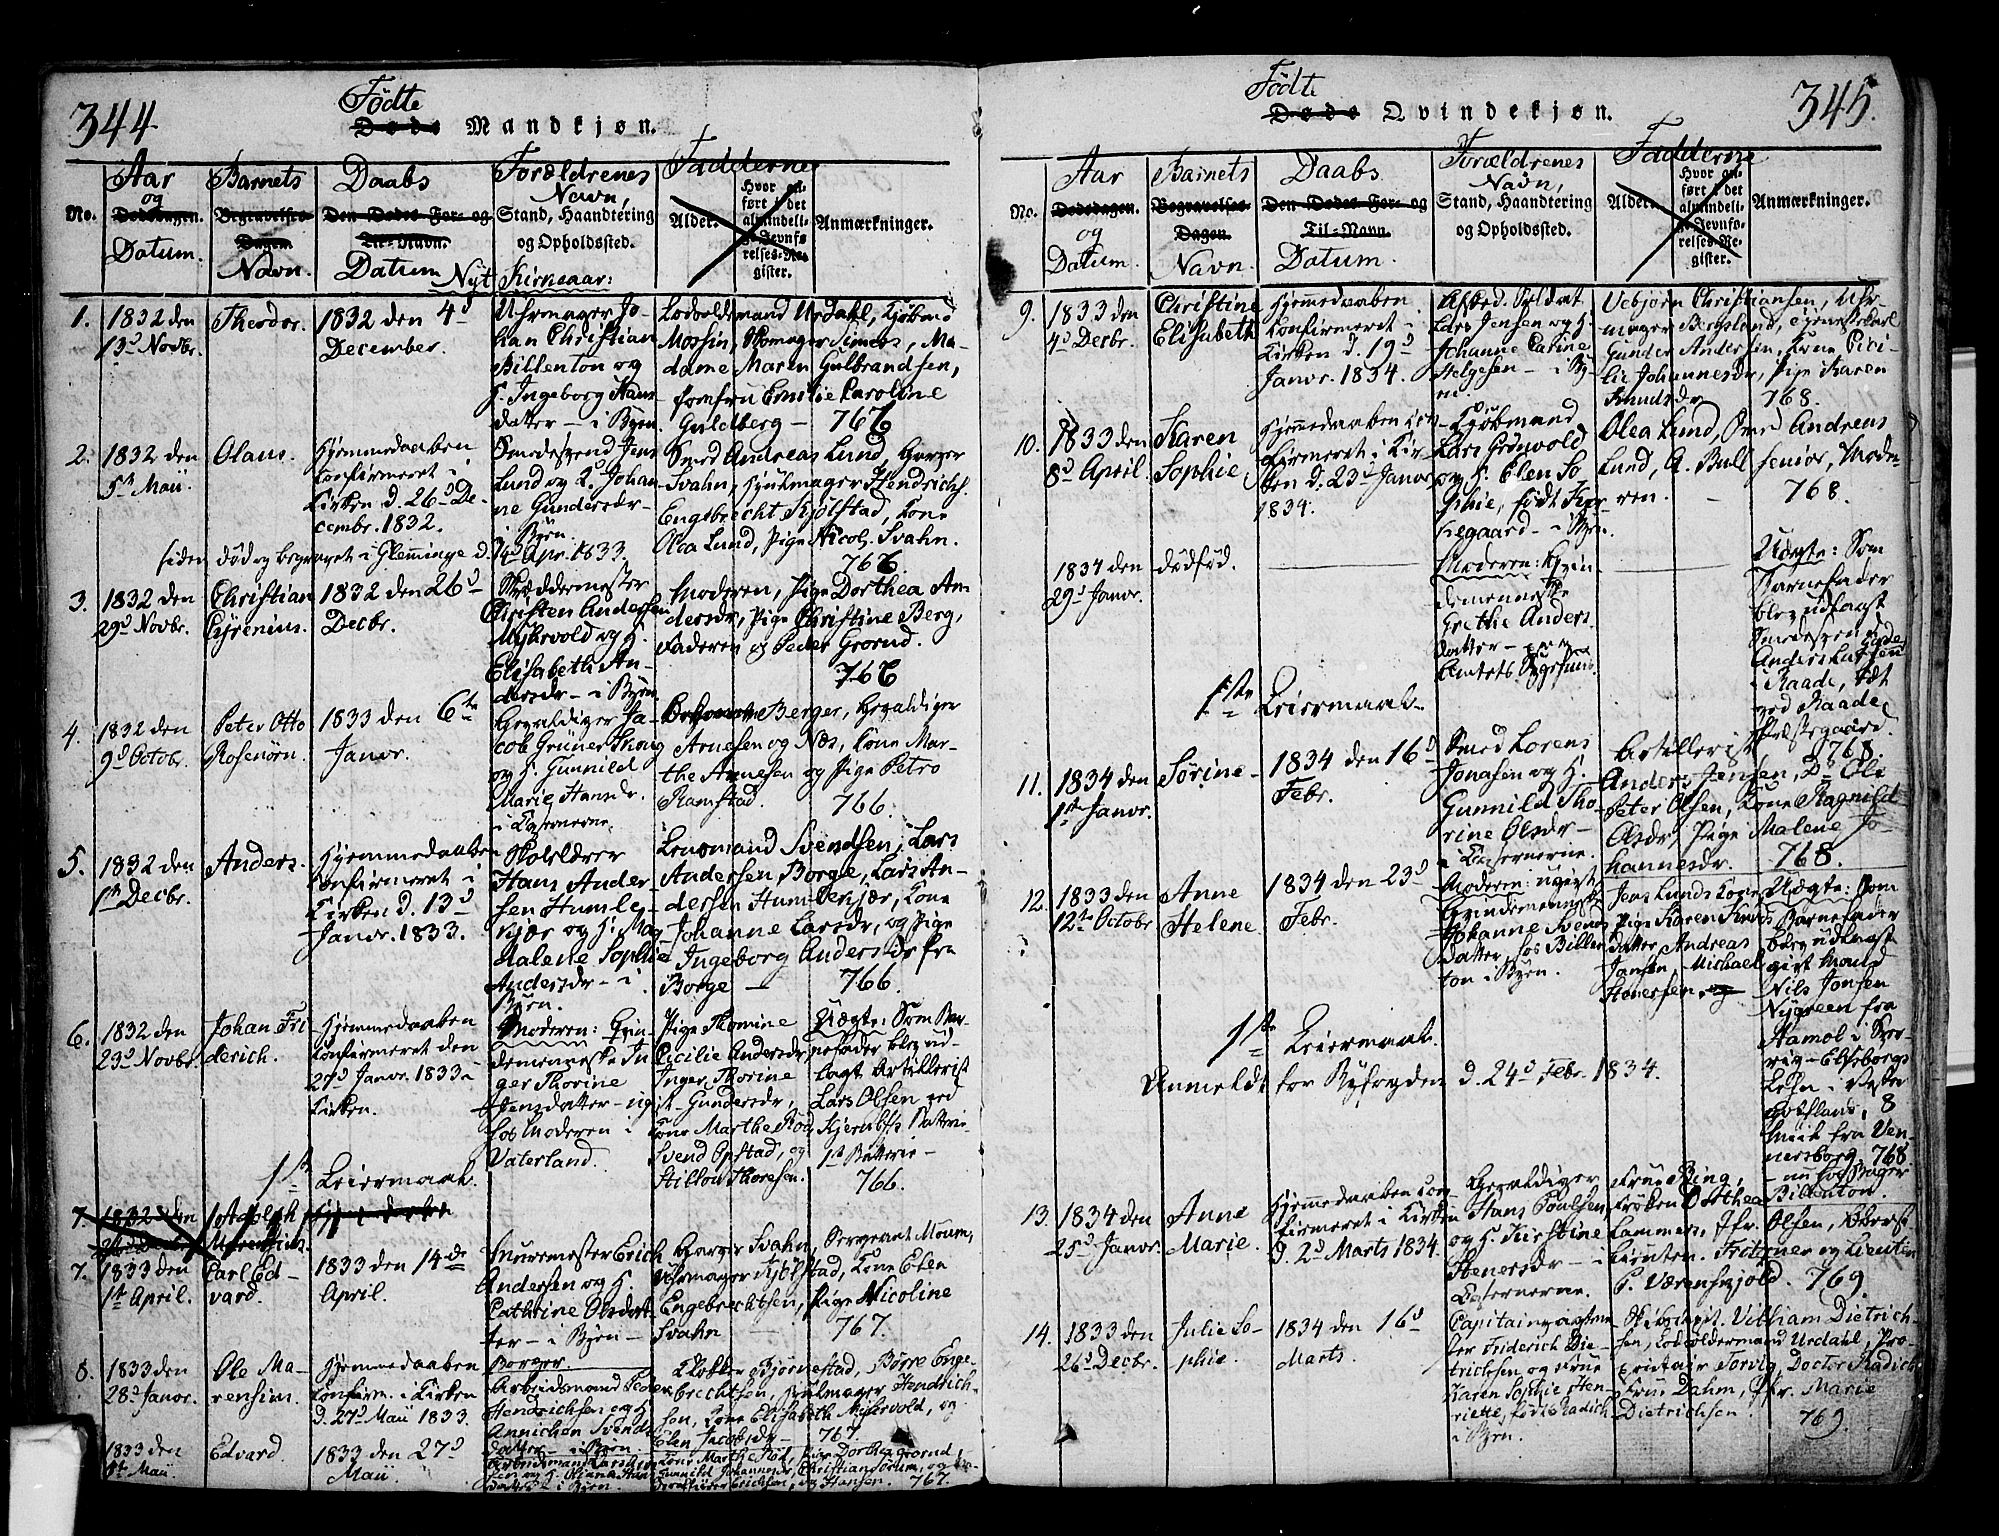 344
Fødte
Døde Mandkjøn.
No.
Aar og Dødsdagen. Datum.
Barnets Begravelses-Dagen Navn.
Daabs Den Dødes For- og Til-Navn. Datum
Forældrenes Navn, Stand, Haandtering og Opholdssted.
Fadderne
Alder.
Hvor anført i det almindelige Jevnførelses-Register.
Anmærkninger.
Nyt Kirkeaar:
1.
1832 den
13d Novbr.
Theodor.
1832 den 4d
December.
Uhrmager Jo-
han Christian
Billenton og
H. Ingeborg Hans
datter – i Byen.
Lodsoldermand Urdahl, Kjøbmd
Mossin, Skomager Simers, Ma-
dame Maren Gulbrandsen,
Jomfru Emilie Caroline
Guldberg – 766
2.
1832 den
5te Maii.
Olaus.
Hjemmedaaben
confirmeret i
Kirken d. 26d De-
cembr. 1832.
Smedesvend Jens
Lund og K. Johan-
ne Gundersdr –
i Byen.
Smed Andreas Lund, Garver
Svahn, Hjulmager Hendrichs.
Engebrecht Kjølstad, Kone
Olea Lund, Pige Nicol. Svahn.
766
siden død og begravet i Glemminge d. 14d Apr. 1833.
3.
1832 den
29d Novbr.
Christian
Cyrenius.
1832 den 26d
Decbr.
Skræddermester
Christen Andersen
Myhrvold og H.
Elisabeth An-
dersdr – i Byen.
Moderen, Pige Dorthea An-
dersdr, Pige Christine Berg,
Faderen og Peder Grorud.
766
4.
1832 den
9d Octobr.
Peter Otto
Rosenørn
1833 den 6te
Janvr.
Gevaldiger Ja-
cob Grüner Skoug
og H. Gunnild
Marie Hansdr.
i Casernerne.
Berger, Gevaldiger
Arnesen og Næs, Kone Mar-
the Arnesen og Pige Petro
Ramstad. 766.
5.
1832 den
1te Decbr.
Anders.
Hjemmedaaben
confirmeret i
Kirken d. 13d
Janvr. 1833.
Skolelærer
Hans Ander-
sen Humle-
kjær og H. Mag-
dalene Sophie
Andersdr – i
Byen.
Lensmand Svendsen, Lars
Andersen Borge, Lars An-
dersen Humlekjær, Kone
Johanne Larsdr, og Pige
Ingeborg Andersdr fra
Borge – 766.
6.
1832 den
23d Novbr.
Johan Fri
derich.
Hjemmedaaben
confirmeret den
27d Janvr. 1833 i
Kirken.
Moderen: Qvin-
demenneske In-
ger Thorine
Jensdatter – ugift
hos Moderen i
Vaterland.
Pige Thomine
Cicilie Andersdr,
Inger Thorine
Gundersdr,
Kone Marthe Rød,
Svend Opstad, og
Stillou Thoresen.
Uægte: Som Bar-
nefader blev ud-
lagt Artillerist
Lars Olsen ved
Hjerulfs Batteri-
1st Batterie –
766.
1ste Leiermaal.
7
1832 den
Adolph
7.
1833 den
1te April.
Carl Ed-
vard.
1833 den 14de
April.
Muurmester Erich
Andersen og H.
Cathrine Olsdat-
ter – i Byen –
Garver Svahn, Sergeant Moum,
Uhrmager Kjølstad, Kone Elen
Engebrechtsen, Pige Nicoline
Svahn – 767.
8.
1833 den
28d Janvr.
Ole Ma-
rensius.
Hjemmedaaben
confirm. i Kirken
d. 27d Maii 1833.
Borger
Arbeidsmand Peder
Hendrichsen og H.
Annichen Svends
datter – i Byen.
Klokker Bjørnestad, Børre Enge-
brechtsen, Hjulmager Hendrich-
sen, Kone Elisabeth Myhrvold, og
Elen Jacobsdr – 767.
1833 den
Maii
Edvard.
1833 den 27d
Maii.
Arbeidsmand
datter – i Byen.
Kone Marthe Rød, Pige Dorthea Grorud,
Gunnild Johannesdr, Christian Sørum, og
og Hansen. 767.
345.
Fødte
Døde Qvindekjøn.
No.
Aar Dødsdagen. og Datum.
Barnets Begravelses-Dagen. Navn.
Daabs Den Dødes For- og Til-Navn. Datum.
Forældrenes Navn, Stand, Haandtering og Opholdssted.
Fadderne
Alder.
Hvor anført i det almindelige Jevnførelses-Register.
Anmærkninger.
9.
1833 den
4d Decbr.
Christine
Elisabeth
Hjemmedaaben
confirmeret i
Kirken d. 19d
Janvr. 1834.
Afsked. Soldat
Lars Jensen og H.
Johanne Carine
Helgesen – i By-
en.
Uebjørn Christiansen, Uhr-
mager Bergslund, Tjenestekarl
Gunder Andersen, Kone Cici-
lie Johannesdr, Pige Karen
Knudsdr 768.
10.
1833 den
8d April.
Karen
Sophie
Hjemmedaaben con-
firmeret i Kir-
ken d. 23d Janvr
1834.
Kjøbmand
Lars Grønvold
og H. Elen So-
phie, født
hegaard – i Byen.
Olea Lund, Smed Andreas
Lund, A. Bull senior, Mode-
ren. – 768.
1834 den
29d Janvr.
dødfød.
Moderen: Qvin-
demenneske
Grethe Anders-
datter –
Amtets Sygehuus.
Uægte: Som
Barnefader
blev udlagt
Smedesvend
Anders Larsen
i Raade, tæt
ved Raade
Præstegaard.
768.
1ste Leiermaal.
11.
1834 den
1te Janvr.
Sørine
1834 den 16d
Febr.
Smed Lorens
Jonasen og H.
Gunnild Tho-
rine Olsdr –
i Casernerne.
Artillerist
Anders Jensen, Do Ole
Peter Olsen, Kone Ragnild
Olsdr, Pige Malene Jo-
hannesdr. 768.
12.
1833 den
12te Octobr
Anne
Helene
1834 den 23d
Febr.
Moderen: ugift
Qvindemenneske
Johanne Svens
datter, hos Billen-
ton i Byen.
Jens Lunds Kone,
Pige Karen Knuds
datter, Andreas
Jansen, Michael
Stenersen, og
Uægte: Som
Barnefader
blev udlagt
gift Mand
Nils Jonsen
Nygreen fra
Aamol i Sver-
rig – Elfsborgs
Lehn i Vester
gothland, 8
Miil fra Ven-
nersborg. 768
– nu hos Uhrmager
Billenton.
1ste Leiermaal.
Anmeldt for Byfogden d. 24d Febr. 1834.
13.
1834 den
25d Janvr.
Anne
Marie.
Hjemmedaaben con-
firmeret i Kirken
d. 2d Marts 1834.
Gevaldiger
Hans Poulsen
og H. Kirstine
Stenersdr – i
Casernerne.
Frue Bing,
Frøken Dorthea
Lammers, Jfr. Olsen, Oberst
Lieuten. Fritzner og Lieuten
P. Værenskjold. 769.
14.
1833 den
26d Decbr.
Julie So-
phie.
1834 den 16d
Marts.
Capitainvagtme-
ster Friderich Die-
trichsen og Frue
Karen Sophie Hen-
riette, født Radich
i Byen.
Skibscapt. Villiam Dietrich-
sen, Lodsoldermand Urdahl, Pro-
prietair Torvig, Doctor Radich
Frue Dahm, Jfr. Marie
Dietrichsen. 769.